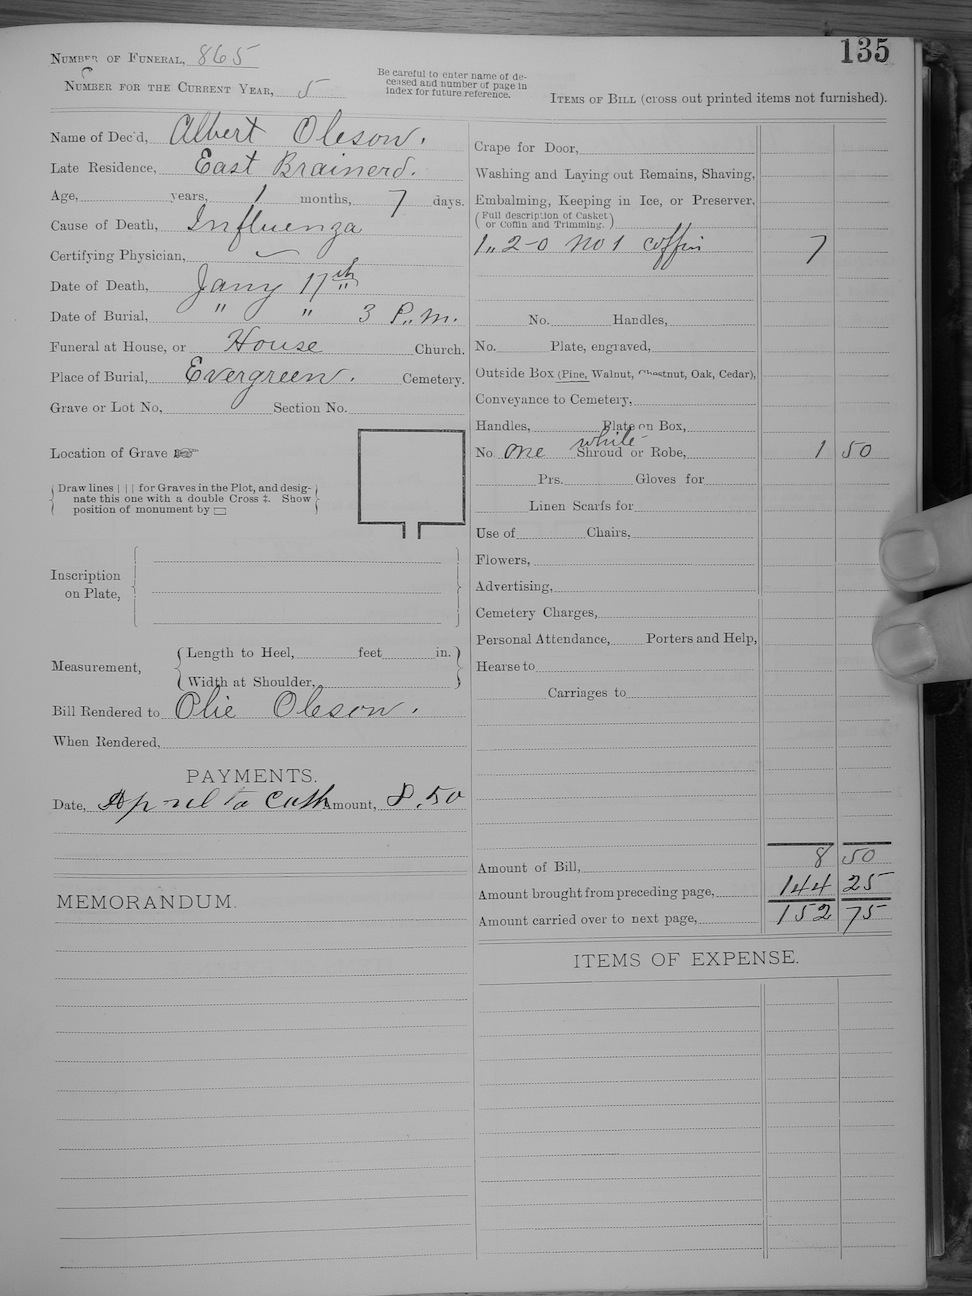 135
NUMBER OF FUNERAL, 865
NUMBER FOR THE CURRENT YEAR, 5
Be careful to enter name of de-
ceased and number of page in
index for future reference.
ITEMS OF BILL (cross out printed items not furnished).
Name of Dec'd, Albert Oleson.
Late Residence, East Brainerd.
Age, years, 1 months, 7 days.
Cause of Death, Influenza
Certifying Physician,
Date of Death, Jany 17th
Date of Burial, " " 3 P.M.
Funeral at House, or House Church.
Place of Burial, Evergreen. Cemetery.
Grave or Lot No, Section No.
Location of Grave ☞
Draw lines | | | for Graves in the Plot, and desig-
nate this one with a double Cross ‡. Show
position of monument by ▭
Inscription
on Plate,
Measurement,
Length to Heel, feet in.
Width at Shoulder,
Bill Rendered to Olie Oleson.
When Rendered,
PAYMENTS.
Date, April to Cash Amount, 8.50
MEMORANDUM.
Crape for Door,
Washing and Laying out Remains, Shaving,
Embalming, Keeping in Ice, or Preserver,
(Full description of Casket
or Coffin and Trimming.)
1,, 2-0 No 1 coffin 7
No. Handles,
No. Plate, engraved,
Outside Box (Pine, Walnut, Chestnut, Oak, Cedar),
Conveyance to Cemetery,
Handles, Plate on Box,
No one white Shroud or Robe, 1 50
Prs. Gloves for
Linen Scarfs for
Use of Chairs,
Flowers,
Advertising,
Cemetery Charges,
Personal Attendance, Porters and Help,
Hearse to
Carriages to
Amount of Bill, 8 50
Amount brought from preceding page, 144 25
Amount carried over to next page, 152 75
ITEMS OF EXPENSE.